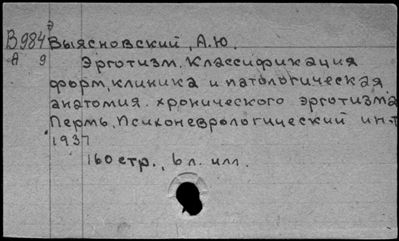 В984 Выясновский, А.Ю.
А 9 Эрготизм. Классификация
форм, клиника и патологическая
анатомия хронического эрготизма
Пермь, Психоневрологический ин-т
1937
160 стр., 6 л. илл.